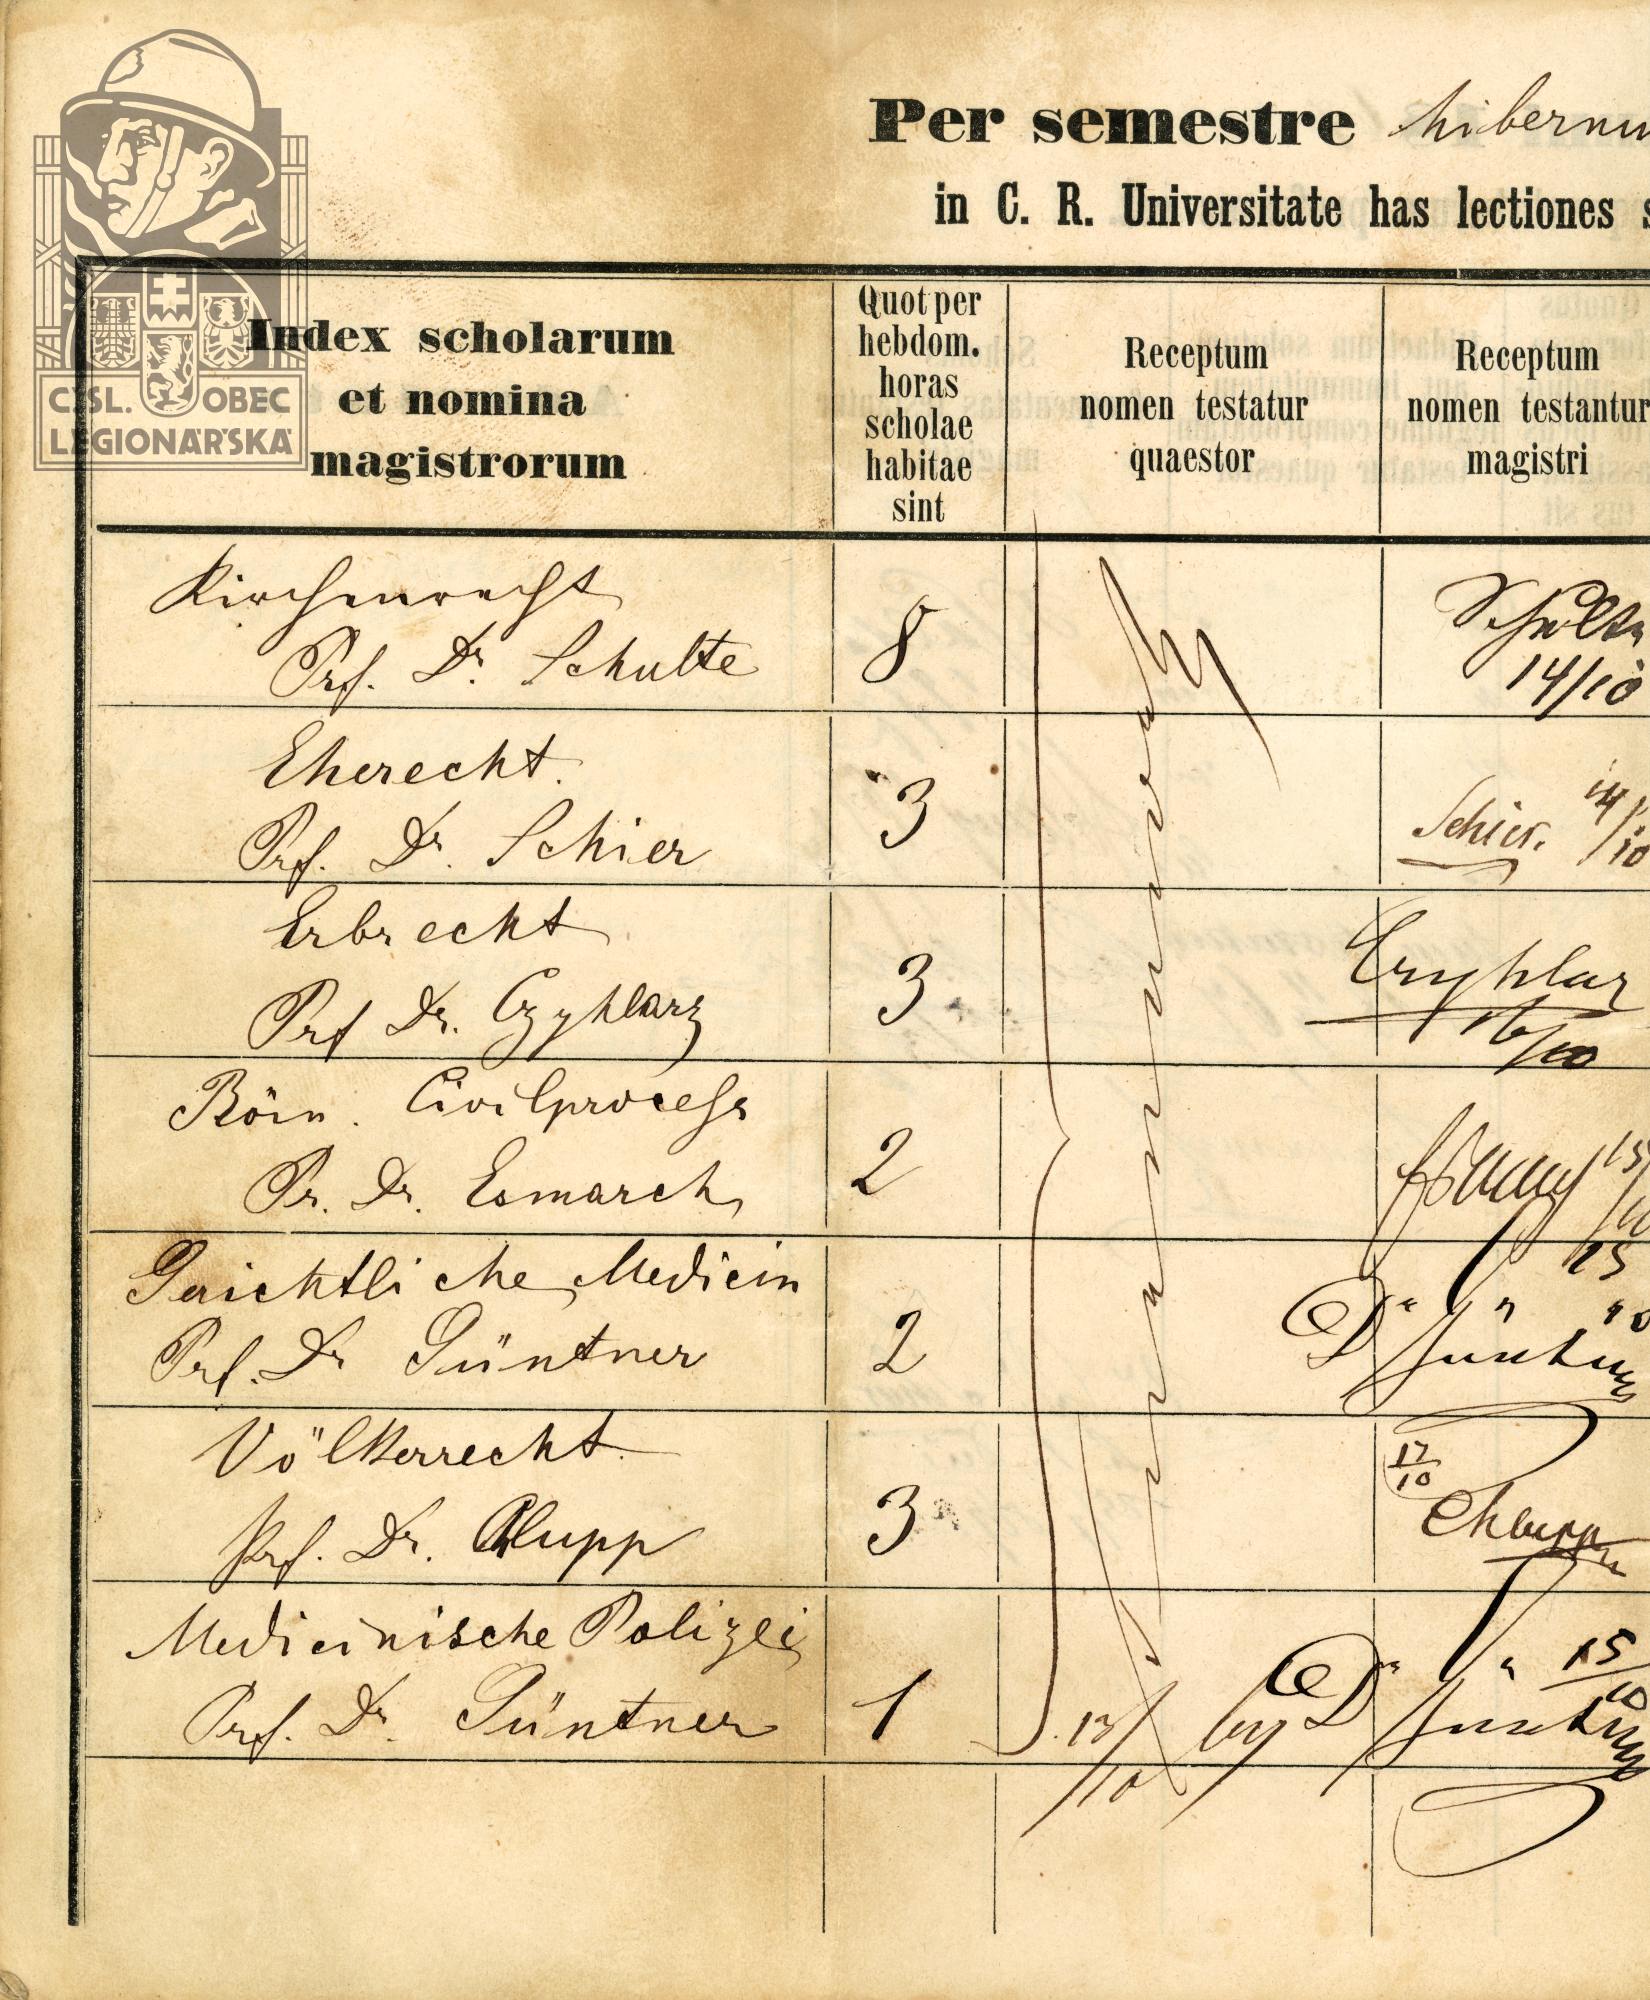 Per semestre hibernu
in C. R. Universitate has lectiones s
ČSL. OBEC
LEGIONÁŘSKÁ
Index scholarum
et nomina
magistrorum
Quot per
hebdom.
horas
scholae
habitae
sint
Receptum
nomen testatur
quaestor
Receptum
nomen testantur
magistri
Kirchenrecht
Prf. Dr. Schulte
8
Schulte
14/10
Eherecht.
Prf. Dr. Schier
3
Schier. 14/10
Erbrecht
Prf Dr. Czyhlarz
3
Czyhlarz
16/10
Röm. Civilprocess
Pr. Dr. Esmarch
2
Esmarch 15/10
Gerichtliche Medicin
Prf. Dr Güntner
2
15/10
Dr Güntner
Völkerrecht
Prf. Dr. Chlupp
3
17/10
Chlupp
Medicinische Polizei
Prf. Dr. Güntner
1
13/10
15/10
Dr Güntner